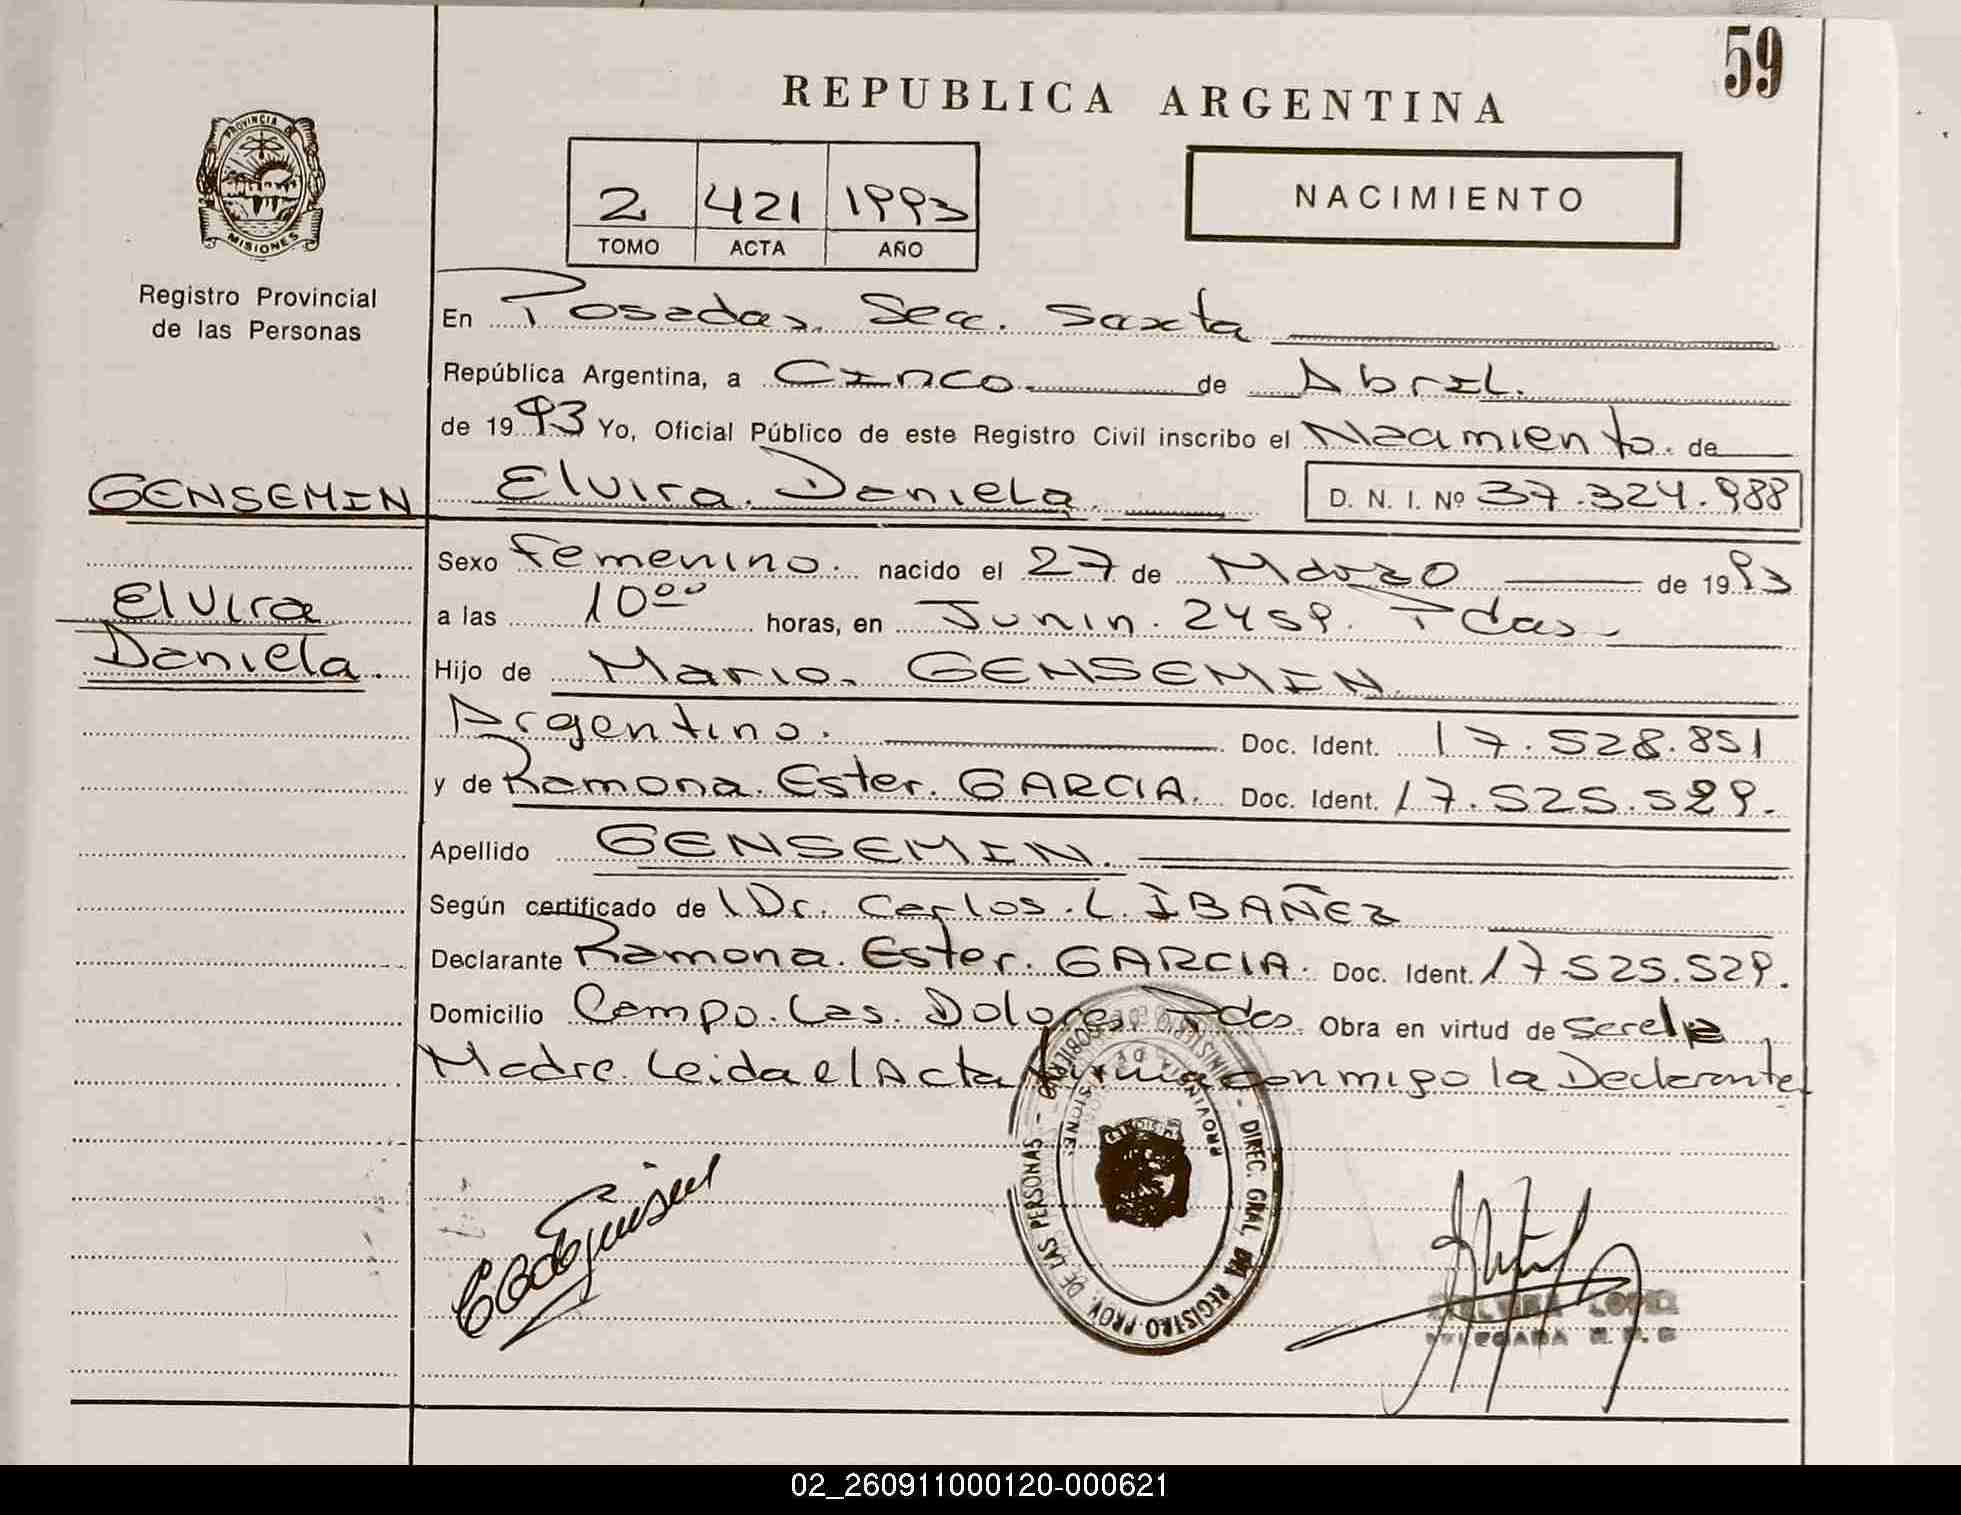 59
REPUBLICA ARGENTINA
PROVINCIA DE
MISIONES
Registro Provincial
de las Personas
2 421 1993
TOMO ACTA AÑO
NACIMIENTO
En Posadas, Secc. Sexta
República Argentina, a Cinco de Abril.
de 1993 Yo, Oficial Público de este Registro Civil inscribo el Nacimiento. de
GENSEMIN Elvira. Daniela. D. N. I. Nº 37.324.988
Sexo Femenino. nacido el 27 de Marzo de 1993
Elvira
a las 10⁰⁰ horas, en Junin. 2459. Pdas.
Daniela.
Hijo de Mario. GENSEMIN
Argentino. Doc. Ident. 17.528.851
y de Ramona. Ester. GARCIA. Doc. Ident. 17.525.529.
Apellido GENSEMIN.
Según certificado de Dr. Carlos. L. IBAÑEZ
Declarante Ramona. Ester. GARCIA. Doc. Ident. 17.525.529.
Domicilio Campo. Las. Dolores Pdas. Obra en virtud de Ser el la
Madre. Leida el Acta firma conmigo la Declarante
MINISTERIO DE GOBIERNO - DIREC. GRAL. DEL REGISTRO PROV. DE LAS PERSONAS -
PROVINCIA DE MISIONES
LOPEZ
DELEGADA R. P.
02_260911000120-000621